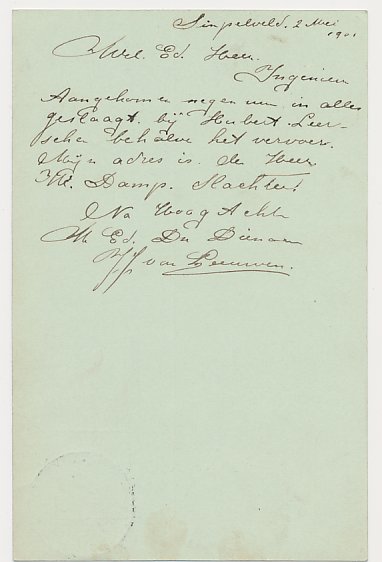 Simpelveld. 2 Mei
1901
Wel. Ed. Heer.
Ingenieur
Aangekomen negen uur in alles
geslaagt. bij Hubert. Leer-
schen behalve het vervoer.
Mijn adres is. de Heer
Damp. Slachter
Na Hoog Acht
Ed. Du Dienaar
van Leeuwen.